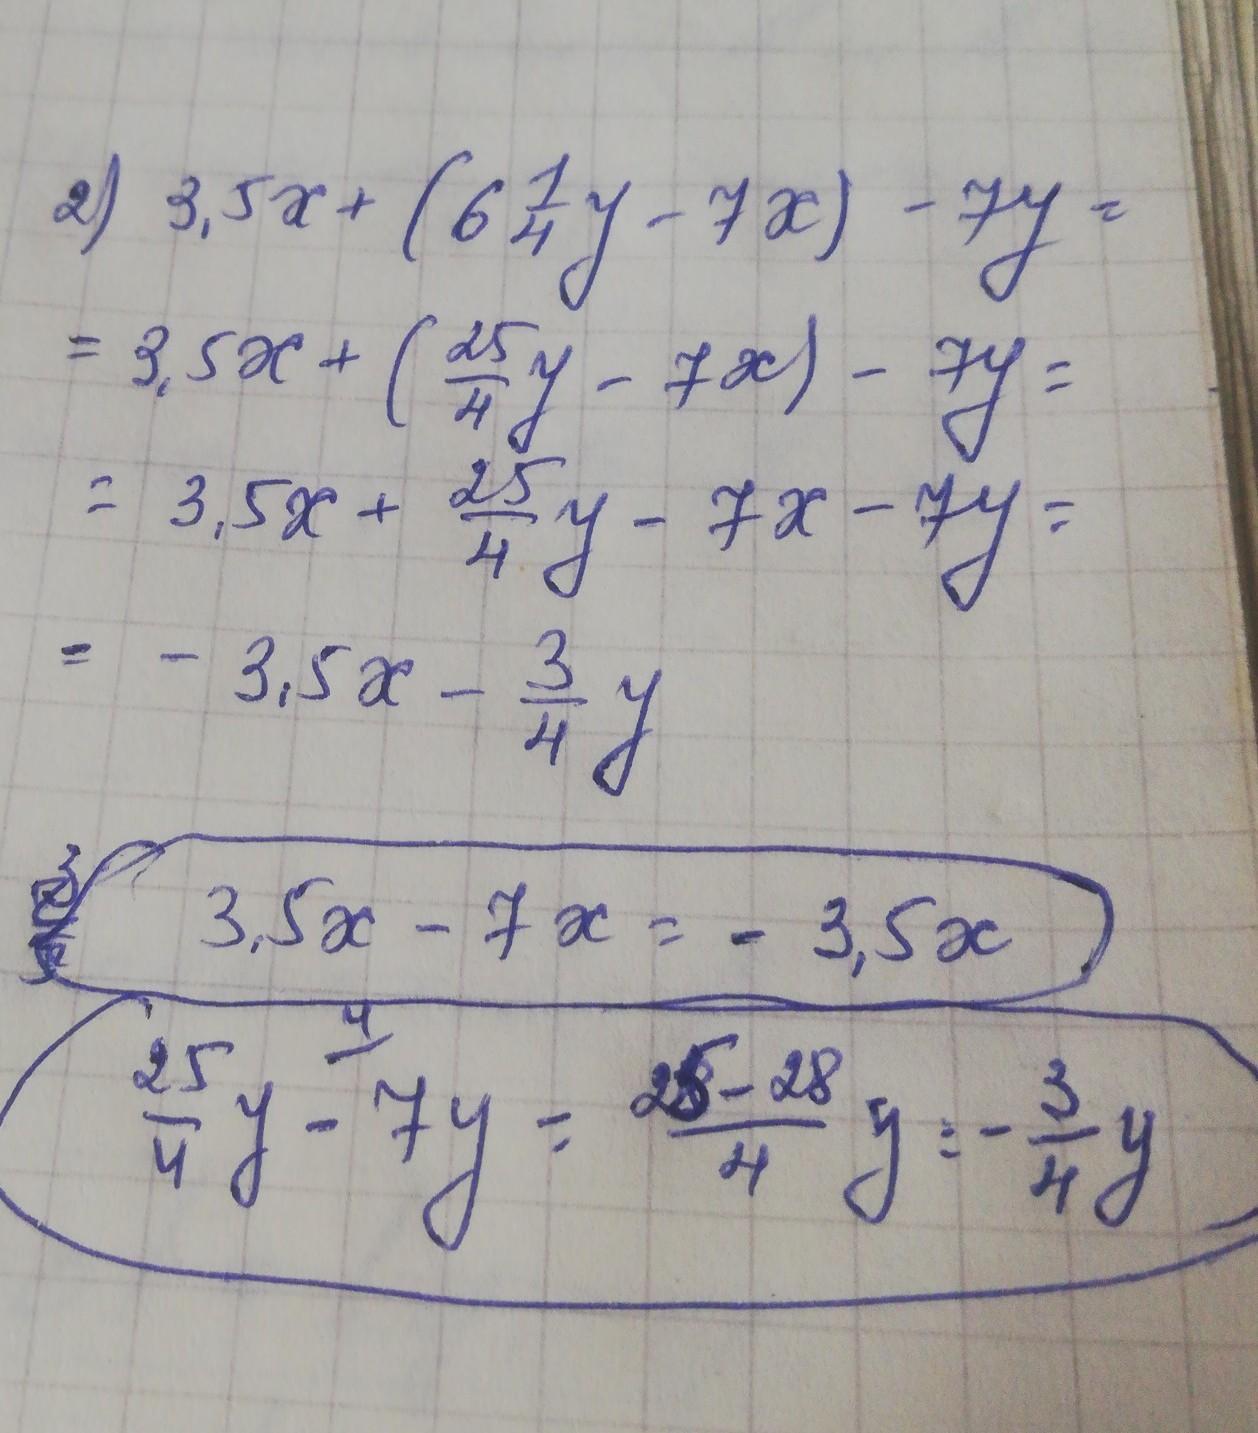 2) 3,5x + (6 1/4 y - 7x) - 7y =
= 3,5x + (25/4 y - 7x) - 7y =
= 3,5x + 25/4 y - 7x - 7y =
= - 3,5x - 3/4 y
3,5x - 7x = - 3,5x
4
25/4 y - 7y = 25-28/4 y = - 3/4 y